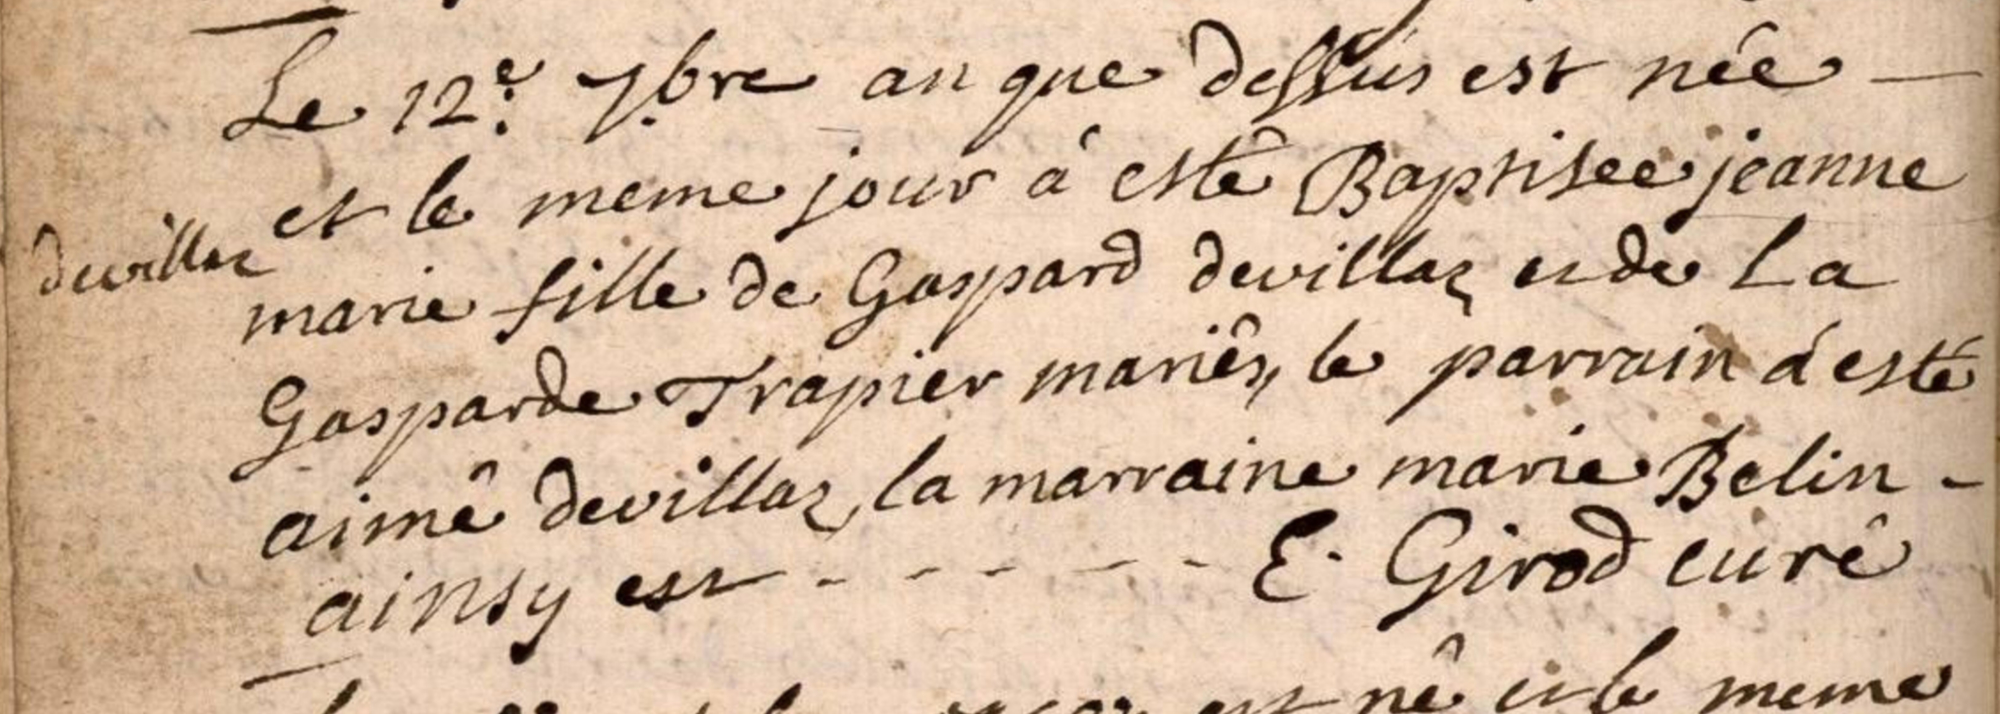 Le 12.e 7bre an que dessus est née —
et le meme jour à esté Baptisee jeanne
devillaz
marie fille de Gaspard devillaz et de La
Gasparde Trapier mariés, le parrain à esté
aimé devillaz, la marraine marie Belin -
ainsy est - - - - - - E. Girod curé
est né et le meme